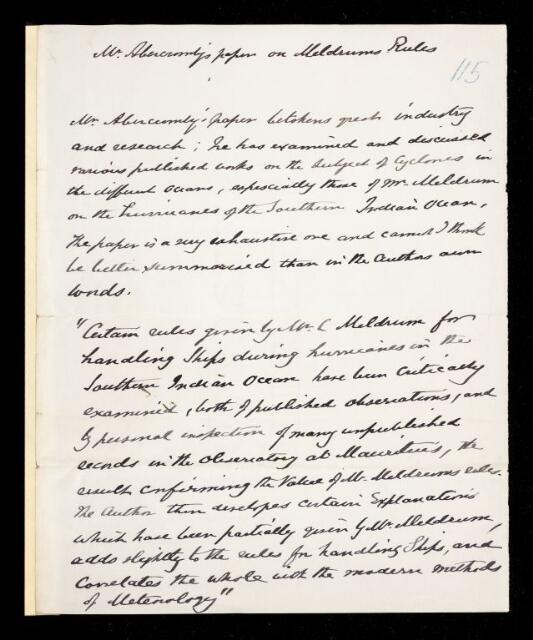 Mr. Abercromby's paper on Meldrums Rules
115
Mr. Abercromby's paper betokens great industry
and research; he has examined and discussed
various published works on the subject of Cyclones in
the different oceans, especially those of Mr. Meldrum
on the hurricanes of the Southern Indian Ocean,
The paper is a very exhaustive one and cannot I think
be better summarised than in the Authors own
words.
"Certain rules given by Mr. C Meldrum for
handling Ships during hurricanes in the
Southern Indian Ocean have been critically
examined, both by published observations, and
by personal inspection of many unpublished
records in the observatory at Mauritius, the
result confirming the Value of Mr. Meldrums rules.
The Author then developes certain Explanations
which have been partially given by Mr. Meldrum,
adds slightly to the rules for handling Ships, and
Correlates the whole with the modern methods
of Meteorology"